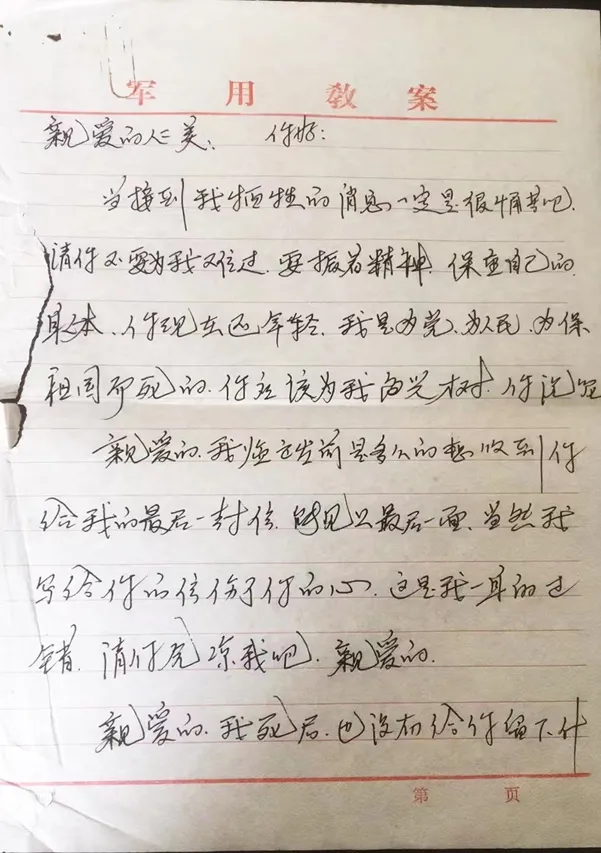 军用教案
亲爱的仁美：你好：
当接到我牺牲的消息一定是很悲吧.
请你不要为我又过.要振着精神.保重自己的
身体.你现在还年轻.我是为党.为人民.为保
祖国而死的.你应该为我高兴才对.你说呢
亲爱的.我临出发前是多么的想收到你
给我的最后一封信.见上最后一面.当然我
写给你的信伤了你的心.这是我一身的过
错.请你元凉我吧.亲爱的.
亲爱的.我死后.也没有给你留下什
第 页